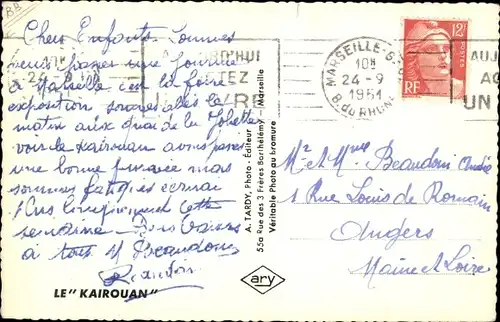 Chers Enfants Sommes
venus passer une journée
à Marseille c'est la foire
exposition sommes allés le
matin aux quai de la Joliette
voir le Kairouan avons passé
une bonne journée mais
sommes fatigués
cette
semaine Bons Baisers
à tous Beaudoin
LE "KAIROUAN"
A. TARDY, Photo - Editeur
55a Rue des 3 Frères Barthélémy - Marseille
Véritable Photo au bromure
ary
24-9
RD'HUI
TEZ
RE
MARSEILLE-G
10H
24-9
1951
B. du RHONE
12F
RF
AUJ
AC
UN
Mr & Mme Beaudoin André
1 Rue Louis de Romain
Angers
Maine et Loire